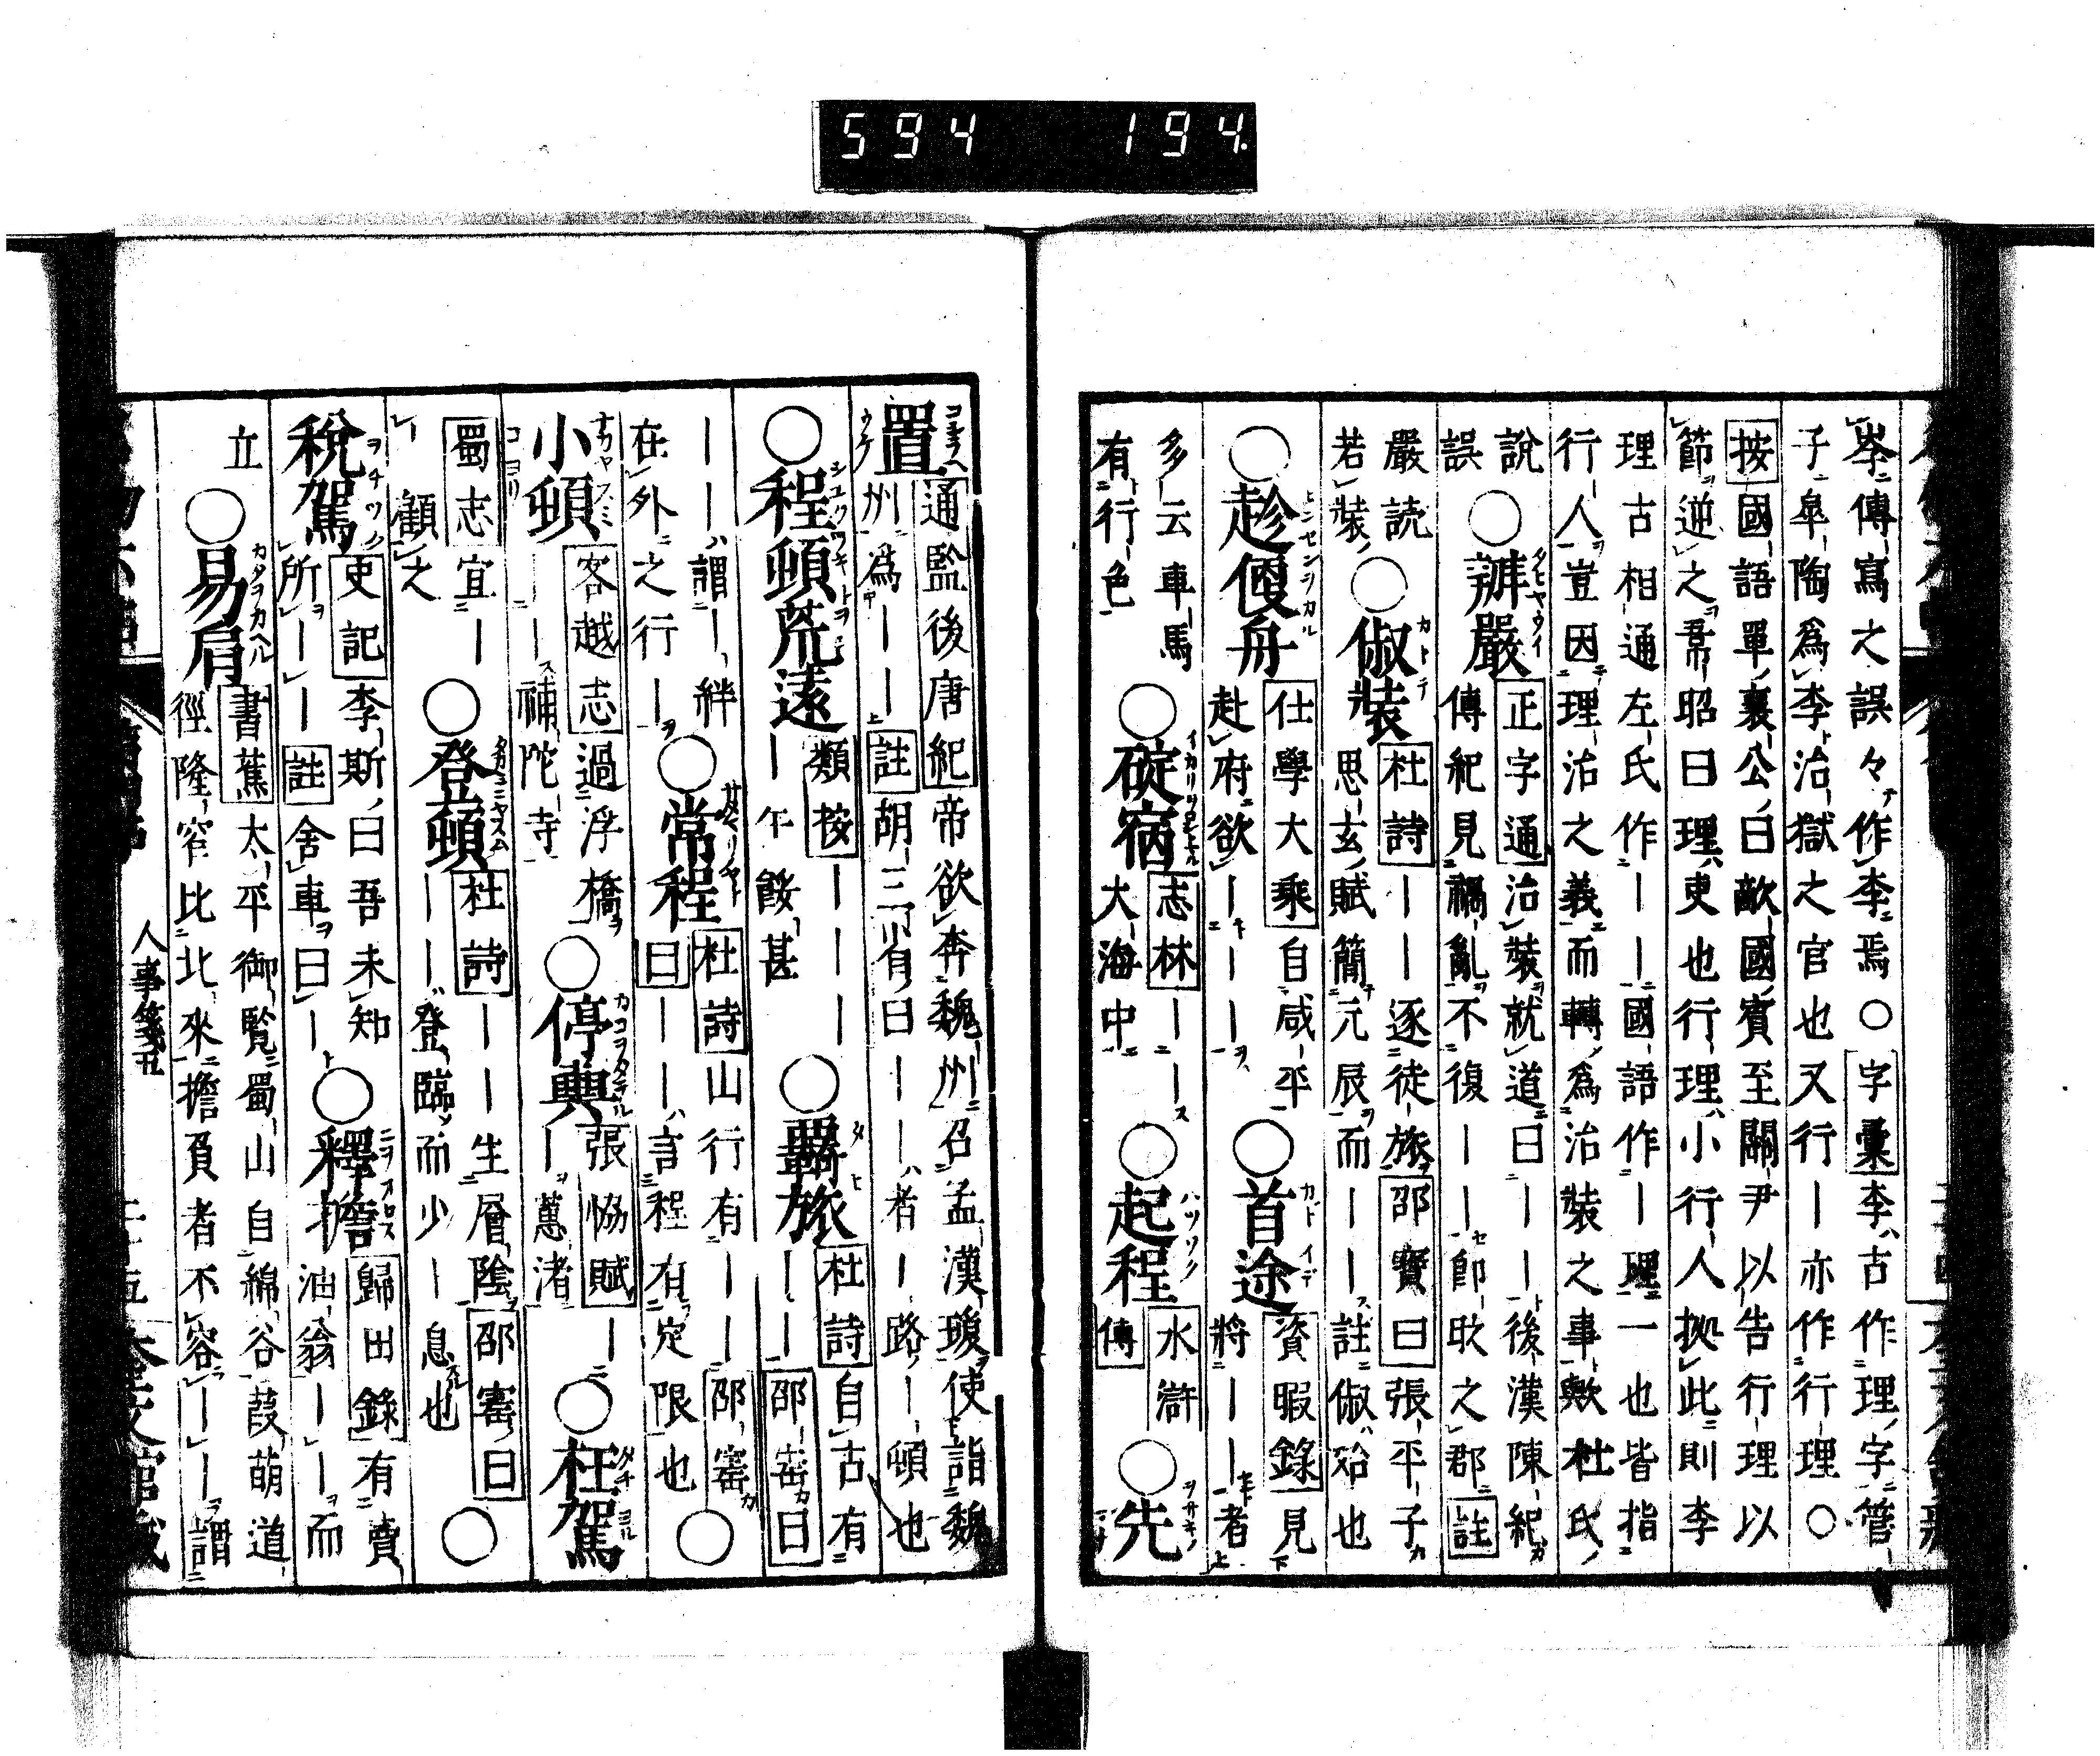 594 194
岑傳寫之誤々作李焉○字彙李古作理字管
子皐陶爲李治獄之官也又行｜亦作行理○
按國語單襄公曰敵國賓至關尹以告行理以
節逆之韋昭曰理吏也行理小行人拠此則李
理古相通左氏作｜｜國語作｜理一也皆指
行人豈因理治之義而轉爲治裝之事歟杜氏
說○辦嚴正字通治裝就道曰｜｜後漢陳紀
誤 傳紀見禍亂不復｜｜卽時之郡註
嚴読○俶裝杜詩｜｜逐徒旅邵寶曰張平子
若裝 思玄賦簡元辰而｜｜註俶始也
○趁便舟仕學大乘自咸平○首途資暇錄見
赴府欲｜｜｜ 將｜｜者
多云車馬○碇宿志林｜｜○起程水滸○先
有行色 大海中 傳
置通監後唐紀帝欲奔魏州召孟漢瓊使詣魏
州爲｜｜註胡三省曰｜｜者｜路｜頓也
○程頓荒遠類按｜｜｜○羇旅杜詩自古有
｜午餕甚 ｜｜邵寶曰
｜｜謂｜絆○常程杜詩山行有｜｜邵寶○
在外之行｜ 曰｜｜言程有定限也
小頓客越志過浮橋○停輿張協賦｜○枉駕
｜｜補陀寺 ｜蕙渚
蜀志宜｜○登頓杜詩｜｜生層陰邵寶曰○
｜顧之 ｜｜登臨而少｜息也
稅駕史記李斯曰吾未知○釋擔歸田錄有賣
所｜｜註舍車曰｜ 油翁｜｜而
立○易肩書蕉太平御覧蜀山自綿谷葭萌道
徑隆窄比北來擔負者不容｜｜謂
人事箋五